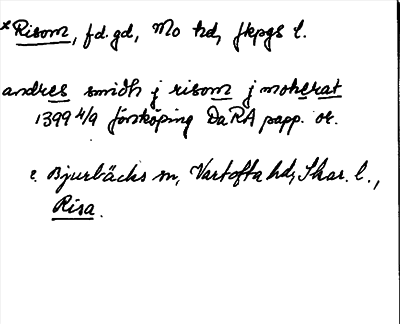 *Risom, fd. gd, Mo hd, Jkpgs l.
andres smidh j risom j moherat
1399 4/9 Jönköping DaRA papp. or.
c. Bjurbäcks sn, Vartofta hd, Skar. l.,
Risa.